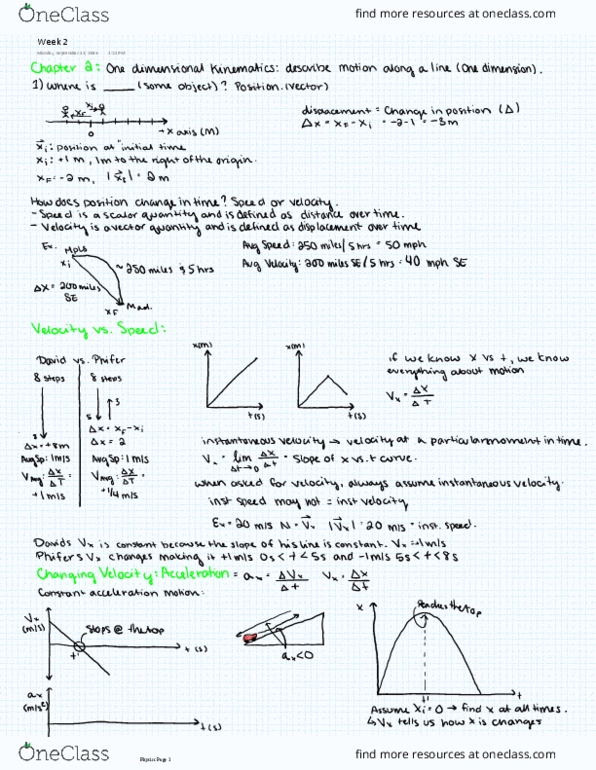 OneClass
find more resources at oneclass.com
Week 2
Chapter 2: One dimensional Kinematics: describe motion along a line (one dimension).
1) Where is ____ (some object)? Position. (vector)
displacement = Change in position (Δ)
Δx = xF - xi = -2-1 = -3m
0
→ x axis (m)
x⃗i: position at "initial time
xi: +1 m, 1m to the right of the origin.
xF = -2 m, |x⃗f| = 2m
How does position change in time? Speed or velocity.
- Speed is a scalar quantity and is defined as distance over time.
- Velocity is a vector quantity and is defined as displacement over time
Ex. Mpls
xi
~250 miles & 5 hrs
Δx = 200 miles
SE
xF Mad.
Avg Speed: 250 miles / 5 hrs = 50 mph
Avg Velocity: 200 miles SE / 5 hrs = 40 mph SE
Velocity vs. Speed:
David vs. Phifer
8 steps
8 steps
5
3
Δx = xF - xi
Δx = +8m
Δx = 2
Avg Sp: 1m/s
Avg Sp: 1 m/s
VAvg: Δx/ΔT =
VAvg: Δx/ΔT =
+1 m/s
+1/4 m/s
x(m)
t(s)
x(m)
t(s)
if we know x vs t, we know
everything about motion
Vx = ΔX/ΔT
instantaneous velocity → velocity at a particular moment in time.
Vx = lim Δt→0 Δx/Δt = slope of x vs. t curve.
when asked for velocity, always assume instantaneous velocity.
inst speed may not = inst velocity
Ex = 20 m/s N = V⃗x |V⃗x| = 20 m/s = inst. speed.
Davids Vx is constant because the slope of his line is constant. Vx = 1m/s
Phifers Vx changes making it +1m/s 0s < t < 5s and -1m/s 5s < t < 8s
Changing Velocity: Acceleration = ax = ΔVx/Δt Vx = Δx/Δt
Constant acceleration motion:
Vx
(m/s)
stops @ the top
t'
t (s)
ax
(m/s²)
t(s)
ax<0
x
Reaches the top
t'
t
Assume Xi = 0 → find x at all times.
↳ Vx tells us how x is changes
Physics Page 1
OneClass
find more resources at oneclass.com